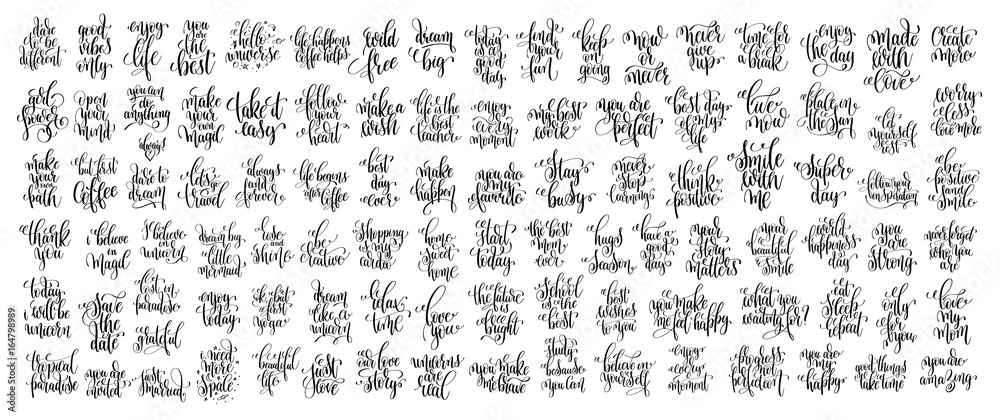 dare to be different
good vibes only
enjoy life
you are the best
hello universe
life happens coffee helps
wild free
dream big
today is a good day
find your fun
keep on going
now or never
never give up
time for a break
enjoy the day
made with love
create more
girl power
open your mind
you can do anything
make your own magic
take it easy
follow your heart
make a wish
life is the best teacher
enjoy every moment
my best work
you are perfect
best day of my life
live now
place in the sun
let yourself rest
worry less love more
make your own path
but first coffee
always dare to dream
let's go travel
always and forever
life begins after coffee
best day ever
make it happen
you are my favorite
stay busy
never stop learning
think positive
smile with me
super day
follow your inspiration
be positive and smile
thank you
i believe in magic
i believe in unicorn
dream big little mermaid
rose and shine
be creative
shopping is my cardio
home sweet home
start today
the best mom ever
hugs season
have a good day
your story matters
your beautiful smile
world happiness day
you are strong
never forget who you are
today i will be unicorn
save the date
lost in paradise
grateful
enjoy today
ok, but first yoga
dream like a unicorn
relax time
love you
the future is bright
school is the best
best wishes to you
you make me feel happy
what you waiting for?
eat sleep repeat
only for you
i love my mom
tropical paradise
you are invited
just married
i need more space
beautiful life
just love
our love story
unicorns are real
you make me brave
study because you can
believe in yourself
enjoy every moment
progress not perfection
you are my happy
good things take time
you are amazing
Adobe Stock
164798989